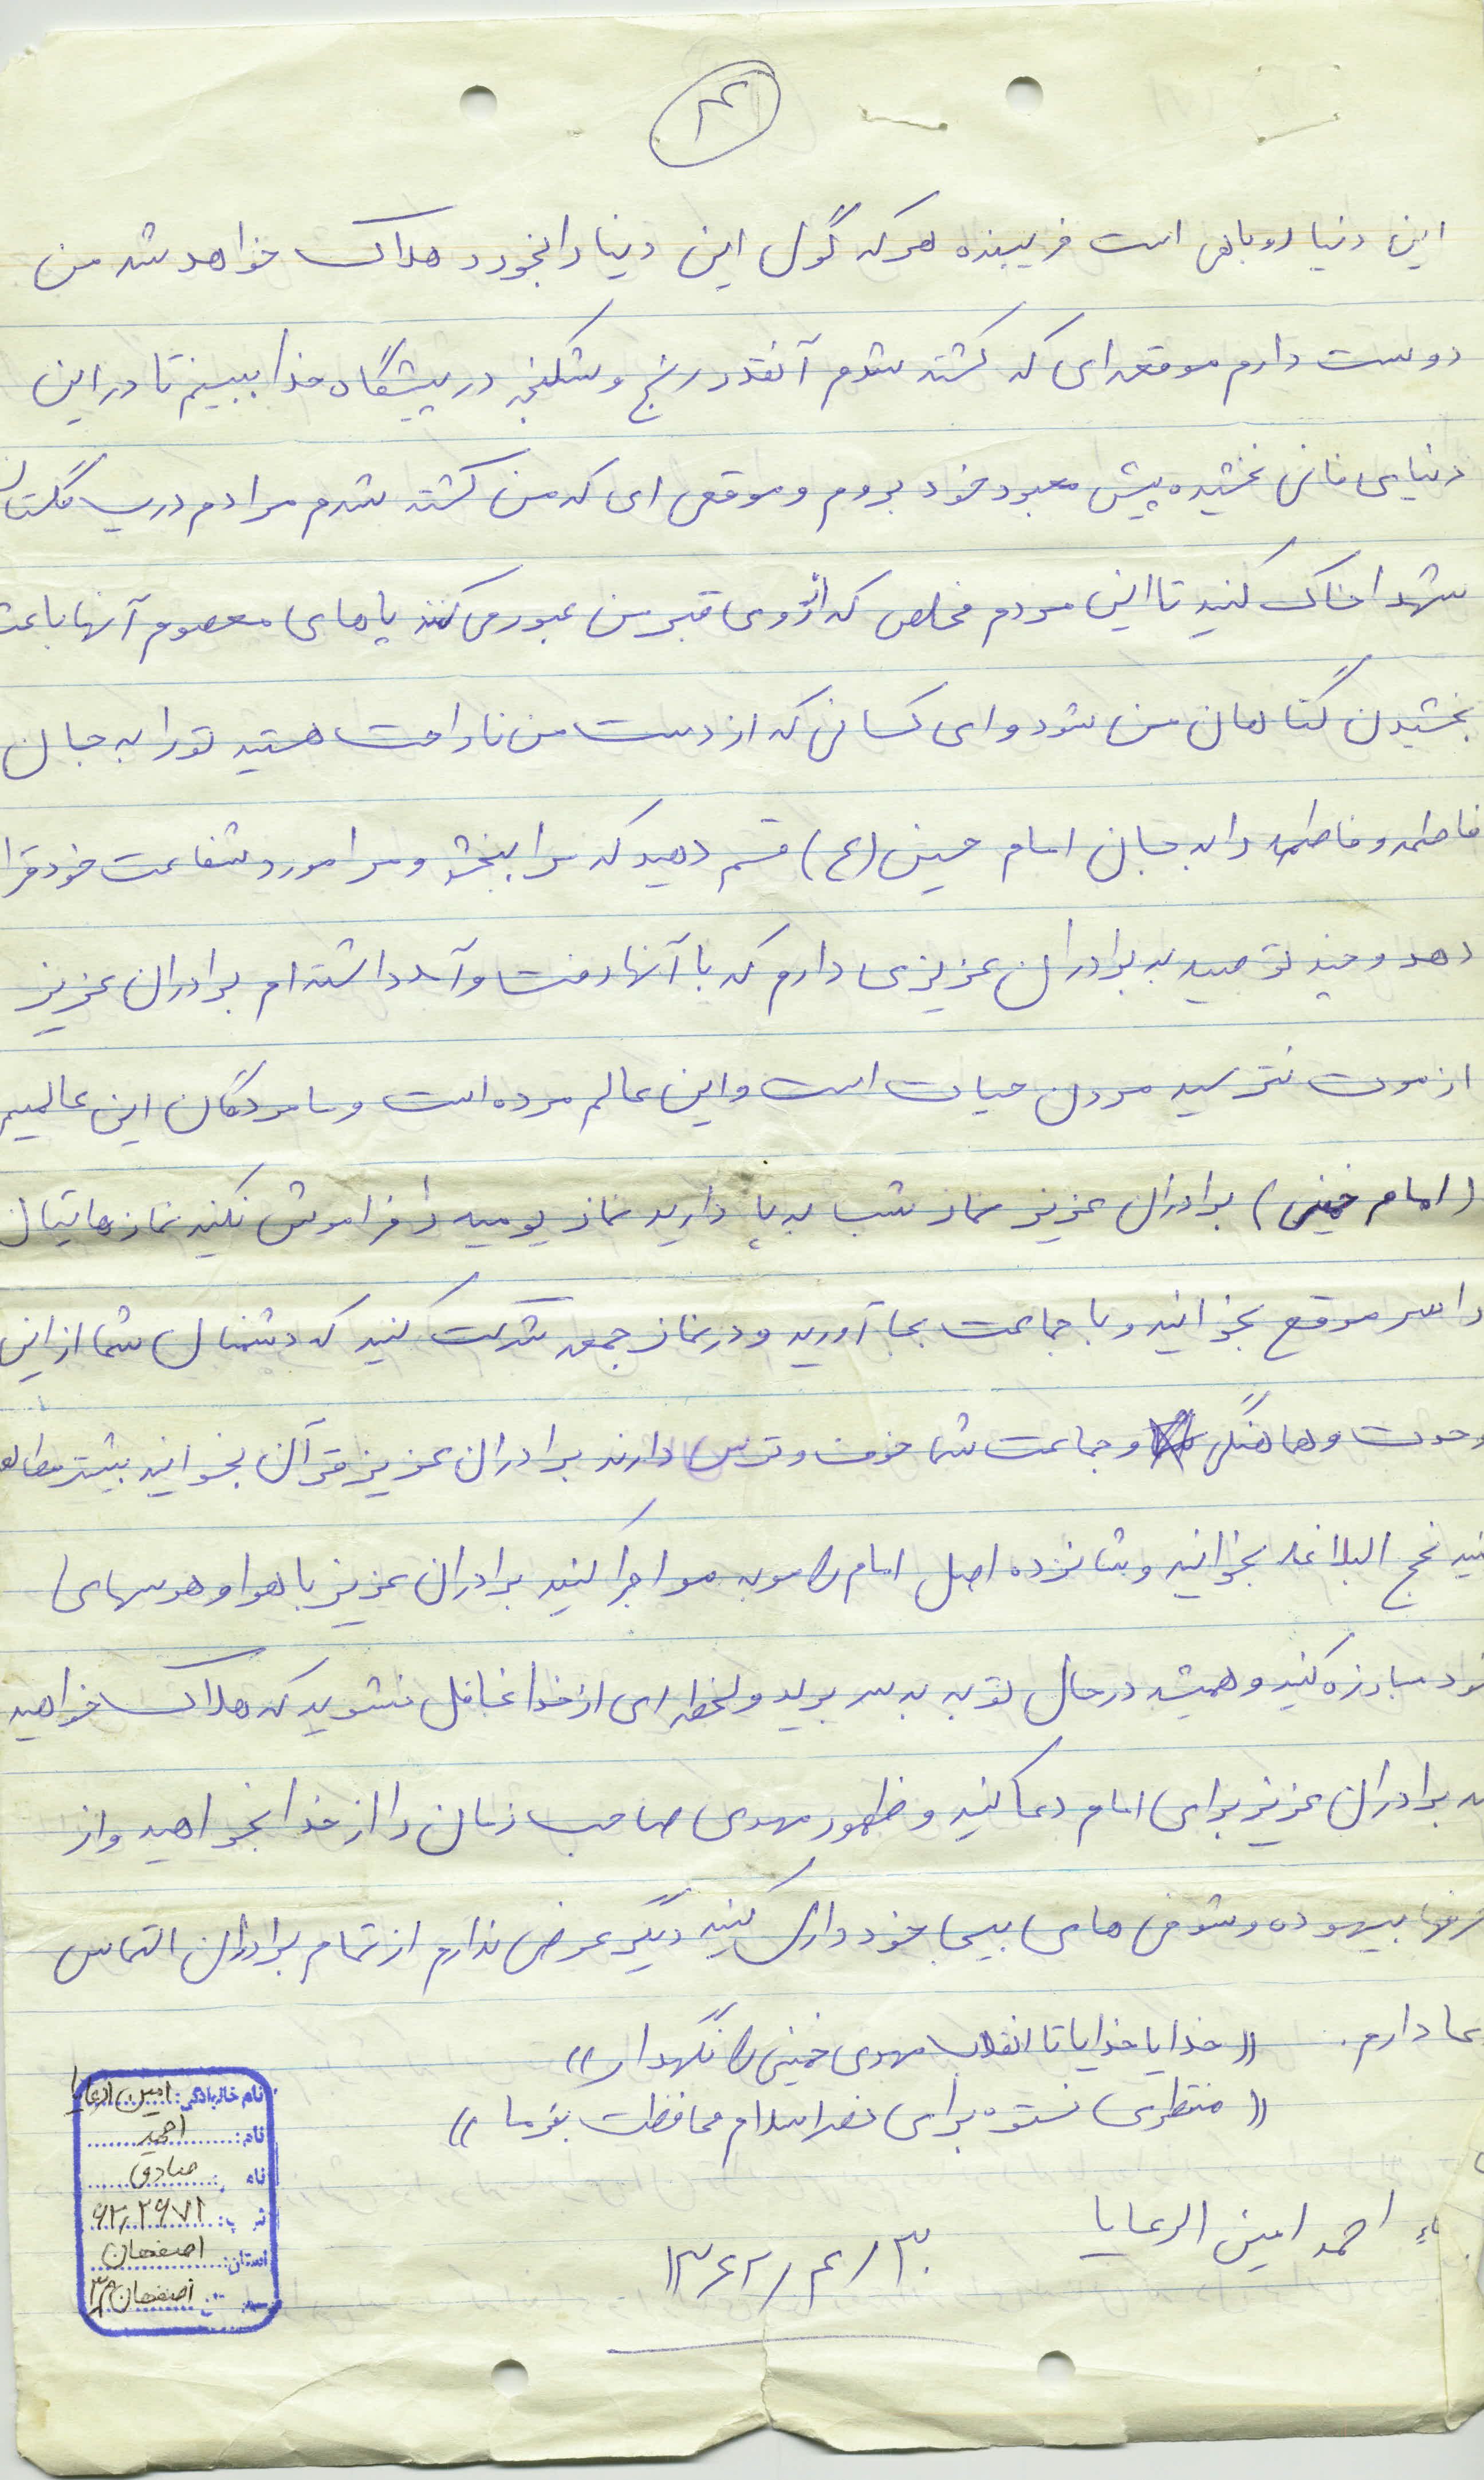 ۴
این دنیا روباهی است فریبنده هر که گول این دنیا را بخورد هلاک خواهد شد من
دوست دارم موقعه ای که کشته شدم آنقدر رنج و شکنجه در پیشگاه خدا ببینم تا در این
دنیای فانی بخشیده پیش معبود خود بروم و موقعی ای که من کشته شدم مرا دم درب گلستان
شهدا خاک کنید تا این مردم مخلص که از روی قبر من عبور می کنند پاهای معصوم آنها باعث
بخشیدن گناهان من شود و ای کسانی که از دست من ناراحت هستید تو را به جان
فاطمه و فاطمه را به جان امام حسین (ع) قسم دهید که مرا ببخشد و مرا مورد شفاعت خود قرار
دهد و چند توصیه به برادران عزیزی دارم که با آنها رفت و آمد داشته ام برادران عزیز
از موت نترسید مردن حیات است و این عالم مرده است و ما مردگان این عالمیم
(امام خمینی) برادران عزیز نماز شب به پا دارید نماز یومیه را فراموش نکنید نمازهایتان
را سر موقع بخوانید و با جماعت بجا آورید و در نماز جمعه شرکت کنید که دشمنان شما از این
وحدت و هماهنگی و جماعت شما خوف و ترس دارند برادران عزیز قرآن بخوانید بیشتر مطالعه
کنید نهج البلاغه بخوانید و شانزده اصل امام را مو به مو اجرا کنید برادران عزیز با هوا و هوسهای
خود مبارزه کنید و همیشه در حال توبه به سر برید و لحظه ای از خدا غافل نشوید که هلاک خواهید
شد برادران عزیز برای امام دعا کنید و ظهور مهدی صاحب زمان را از خدا بخواهید و از
حرفها بیهوده و شوخی های بیجا خودداری کنید دیگر عرضی ندارم از تمام برادران التماس
دعا دارم. ((خدایا خدایا تا انقلاب مهدی خمینی را نگهدار))
((منتظری نستوه برای نصر اسلام محافظت بفرما))
احمد امین الرعایا
۱۳۶۲/۴/۳۰
نام خانوادگی: امین الرعایا
نام: احمد
نام پدر: صادق
۶۲٫۲۶۷۱
استان: اصفهان
اصفهان